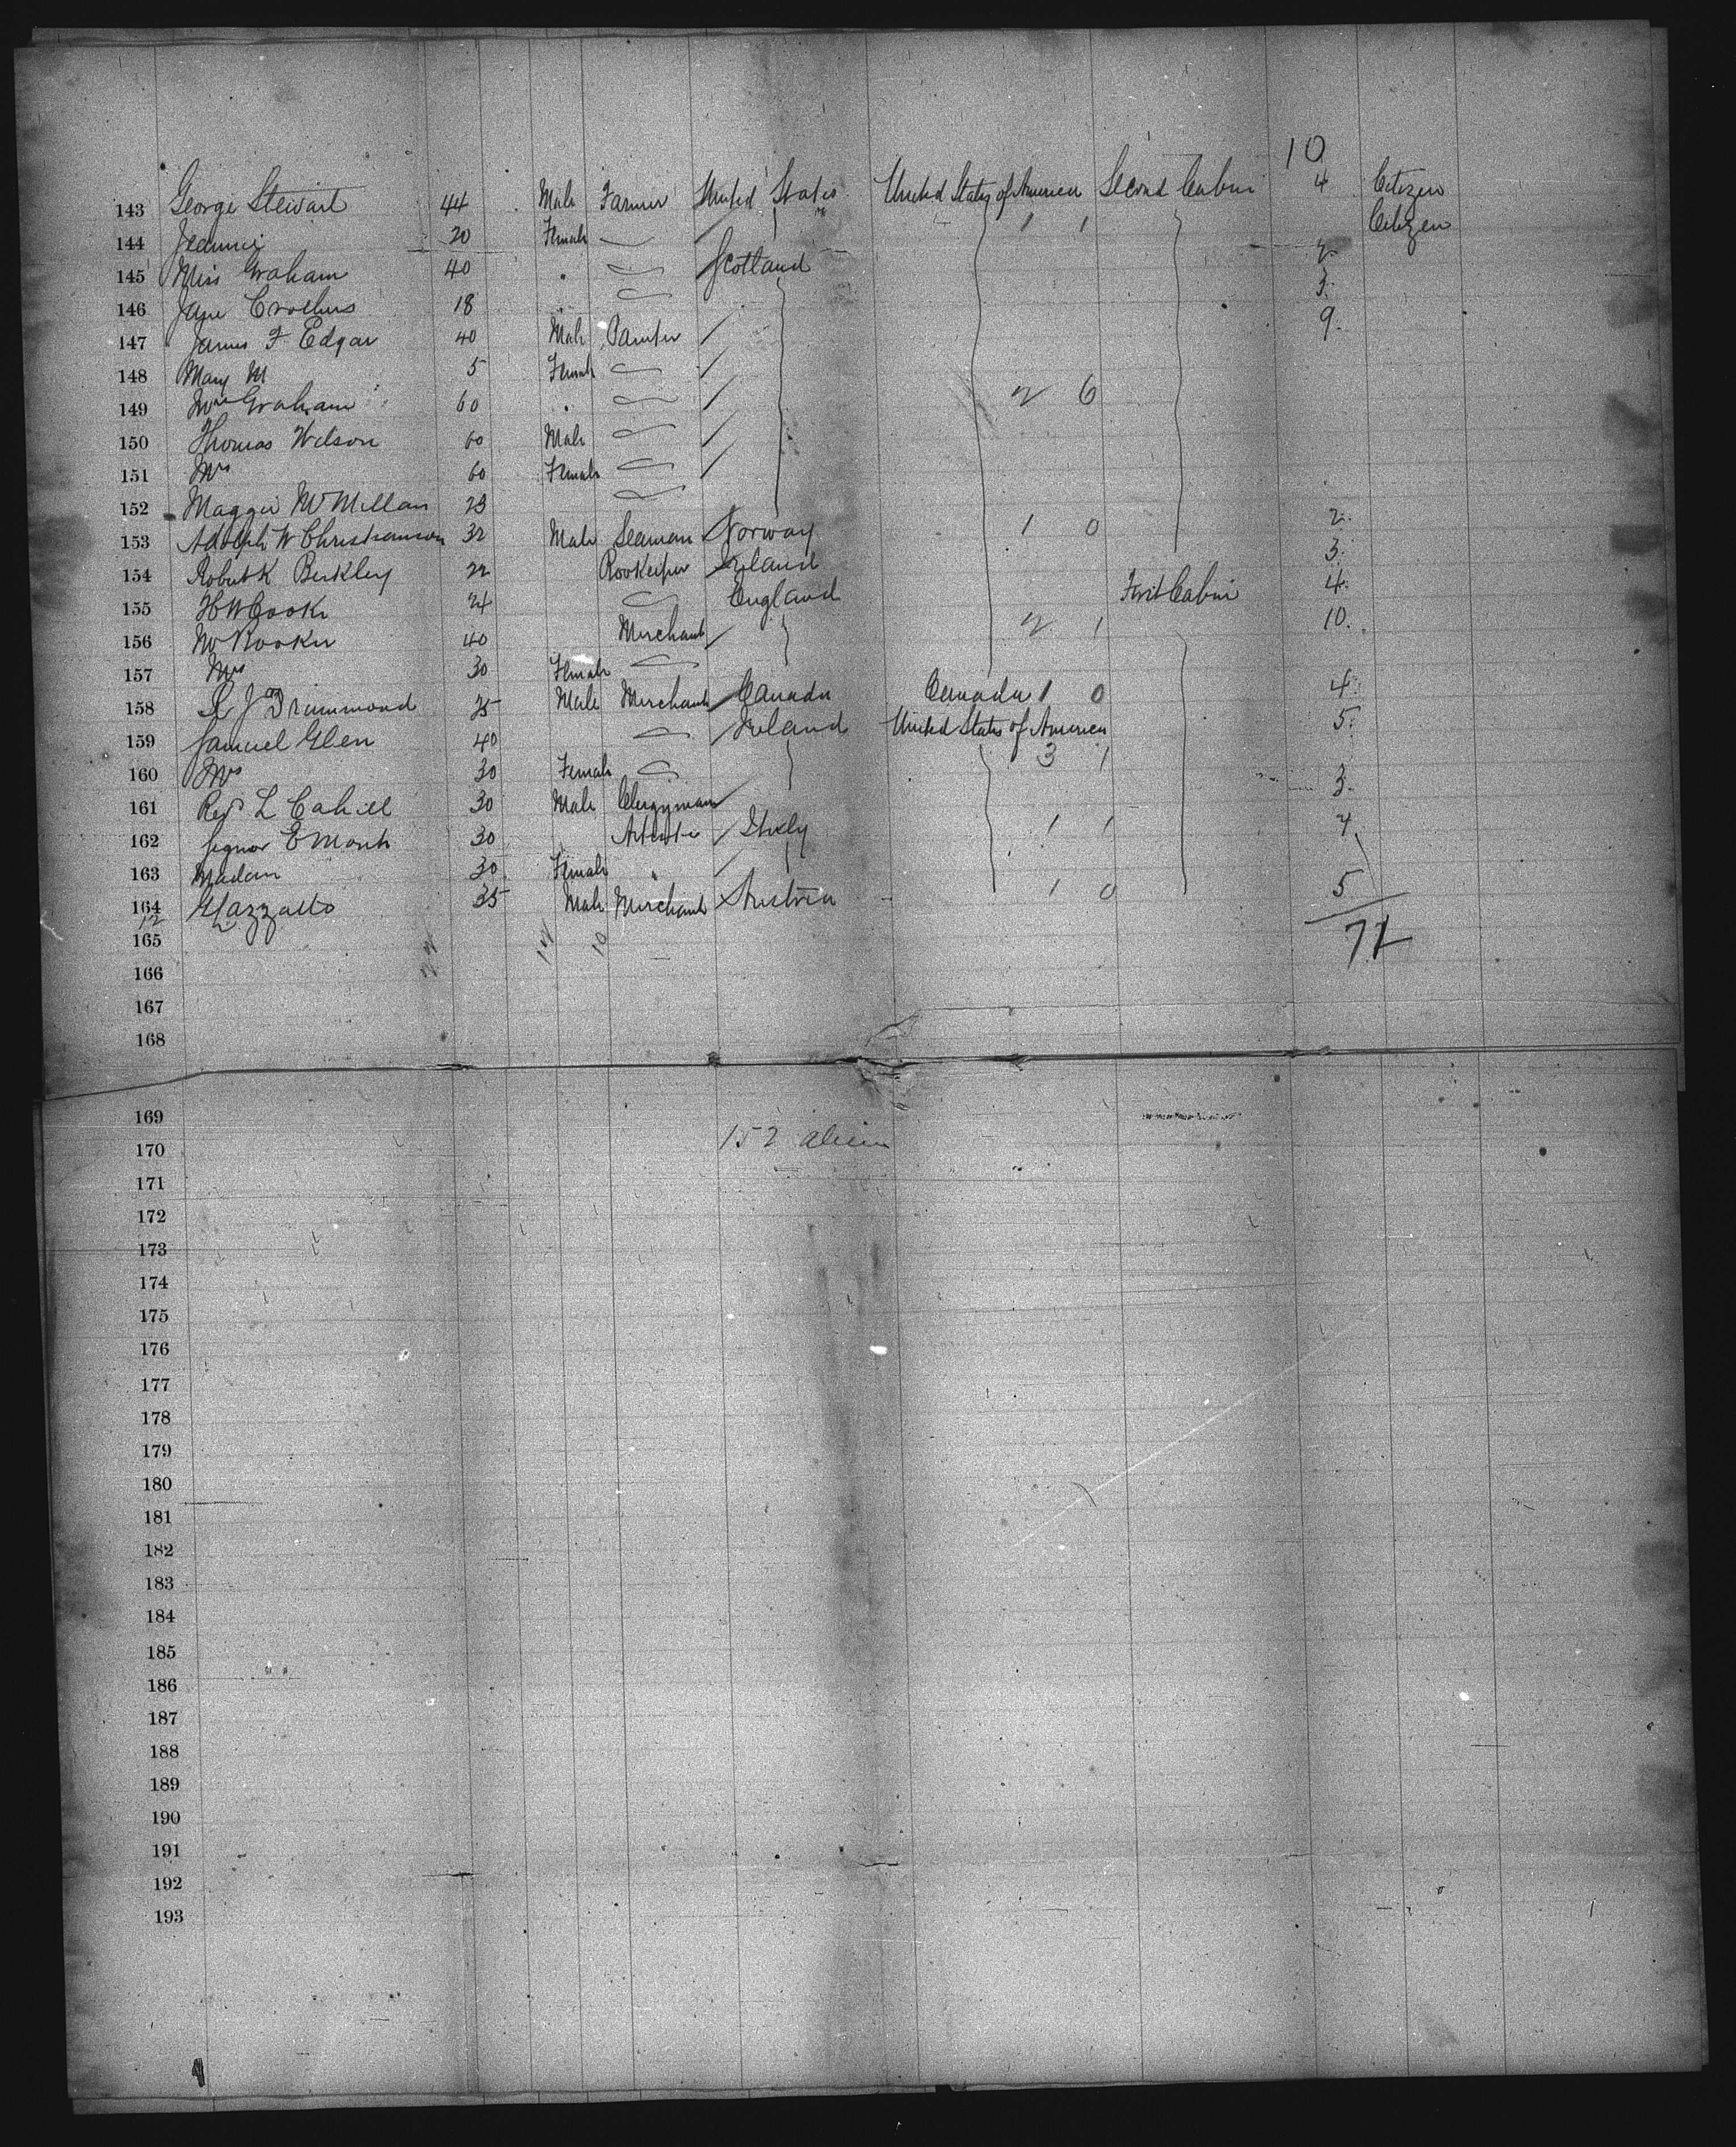 10
143 George Stewart 44 Male Farmer United States United States of America Second Cabin 4 Citizen
144 Jeannie 20 Female 1 1 Citizen
145 Miss Graham 40 Scotland 2
146 Jane 18 3
147 James F Edgar 40 Male Painter 9
148 Mary M 5 Female
149 Mrs Graham 60 2 6
150 Thomas Wilson 60 Male
151 Mrs 60 Female
152 Maggie McMillan 23
153 Adolph W Christianson 32 Male Seaman Norway 1 0 2
154 Robert K Berkley 22 Bookeeper Ireland 3
155 H W Cook 24 England First Cabin 4
156 Mr Rooker 40 Merchant 2 1 10
157 Mrs 30 Female
158 Drummond 35 Male Merchant Canada Canada 1 0 4
159 Samuel Glen 40 Ireland United States of America 5
160 Mrs 30 Female 3 1
161 Revd L Cahill 30 Male Clergyman 3
162 Signor E 30 Artiste Italy 1 1 4
163 Madam 30 Female "
164 35 Male Merchant Austria 1 0 5
12
165 22 14 10 72
166
167
168
169
170 152 alien
171
172
173
174
175
176
177
178
179
180
181
182
183
184
185
186
187
188
189
190
191
192
193